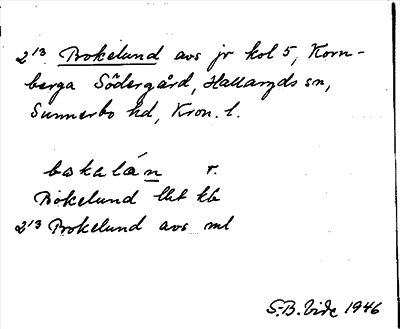 2¹³ Bokelund avs jr kol 5, Korn-
berga Södergård, Hallaryds sn,
Sunnerbo hd, Kron. l.
bokalán r.
Bokelund tbt kb
2¹³ Bokelund avs ml
S.-B. Vide 1946